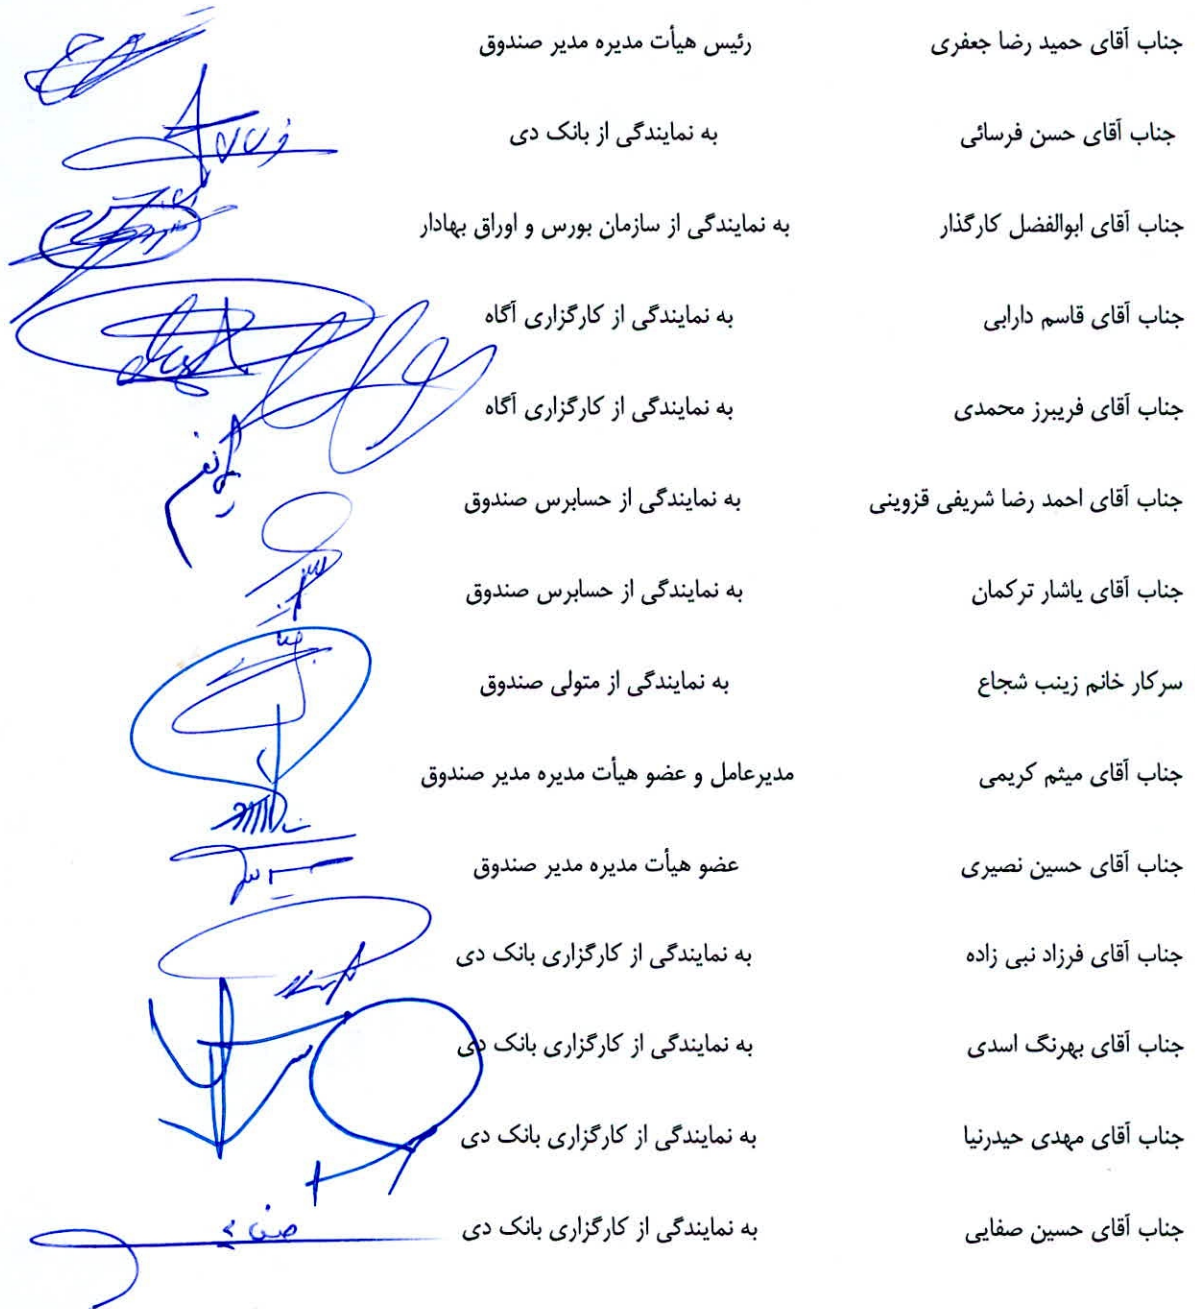 جناب آقای حمید رضا جعفری رئیس هیأت مدیره مدیر صندوق
جناب آقای حسن فرسائی به نمایندگی از بانک دی
جناب آقای ابوالفضل کارگذار به نمایندگی از سازمان بورس و اوراق بهادار
جناب آقای قاسم دارابی به نمایندگی از کارگزاری آگاه
جناب آقای فریبرز محمدی به نمایندگی از کارگزاری آگاه
جناب آقای احمد رضا شریفی قزوینی به نمایندگی از حسابرس صندوق
جناب آقای یاشار ترکمان به نمایندگی از حسابرس صندوق
سرکار خانم زینب شجاع به نمایندگی از متولی صندوق
جناب آقای میثم کریمی مدیرعامل و عضو هیأت مدیره مدیر صندوق
جناب آقای حسین نصیری عضو هیأت مدیره مدیر صندوق
جناب آقای فرزاد نبی زاده به نمایندگی از کارگزاری بانک دی
جناب آقای بهرنگ اسدی به نمایندگی از کارگزاری بانک دی
جناب آقای مهدی حیدرنیا به نمایندگی از کارگزاری بانک دی
جناب آقای حسین صفایی به نمایندگی از کارگزاری بانک دی